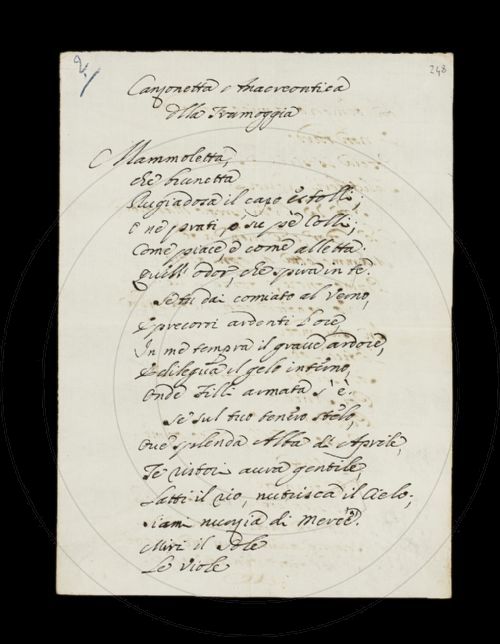 2/
248
Canzonetta o Anacreontica
alla Framoggia
Mammoletta,
che brunetta
Rugiadosa il capo estolli,
E ne' prati, o su pe' Colli,
Come piace, e come alletta
Quell' odor, che spira in te.
Se tu dai comiato al Verno,
E precorri ardenti l'ore,
In me tempra il grave ardore,
E dilegua il gelo interno,
Onde Filli armata s'è.
Se sul tuo tenero stelo,
Ove splenda Alba di Aprile,
Te ristori aura gentile,
Latti il rio, nutrisca il Cielo;
siami nunzia di Mercè.
Miri il Sole
Le viole